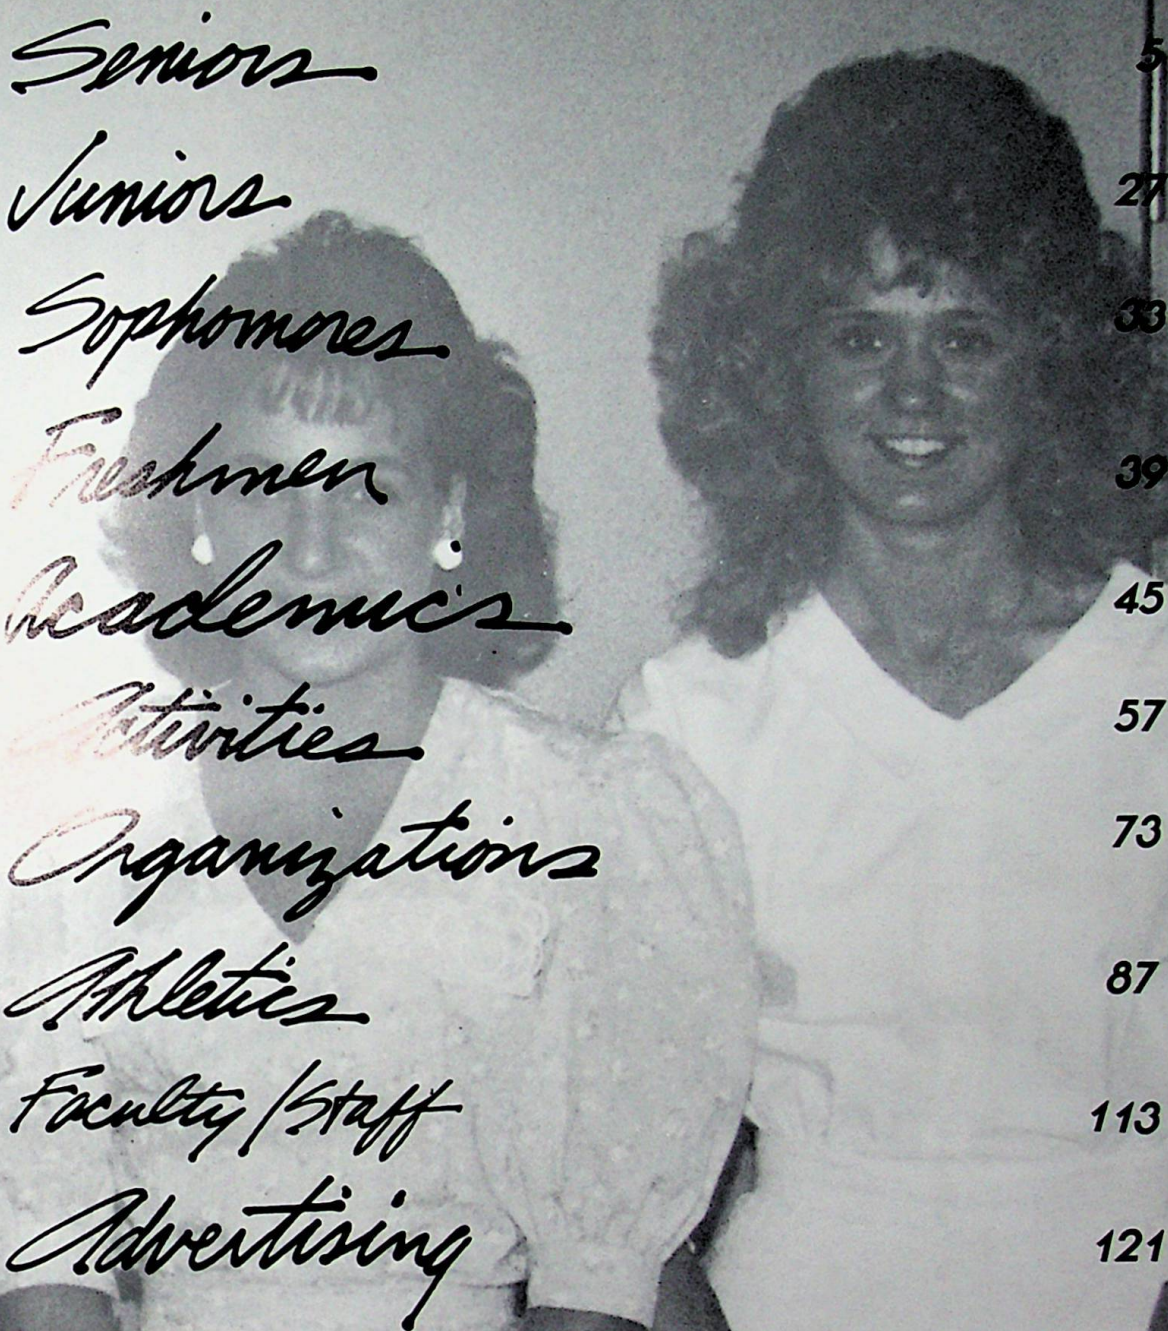 Seniors 5
Juniors 27
Sophomores 33
Freshmen 39
Academics 45
Activities 57
Organizations 73
Athletics 87
Faculty/Staff 113
Advertising 121